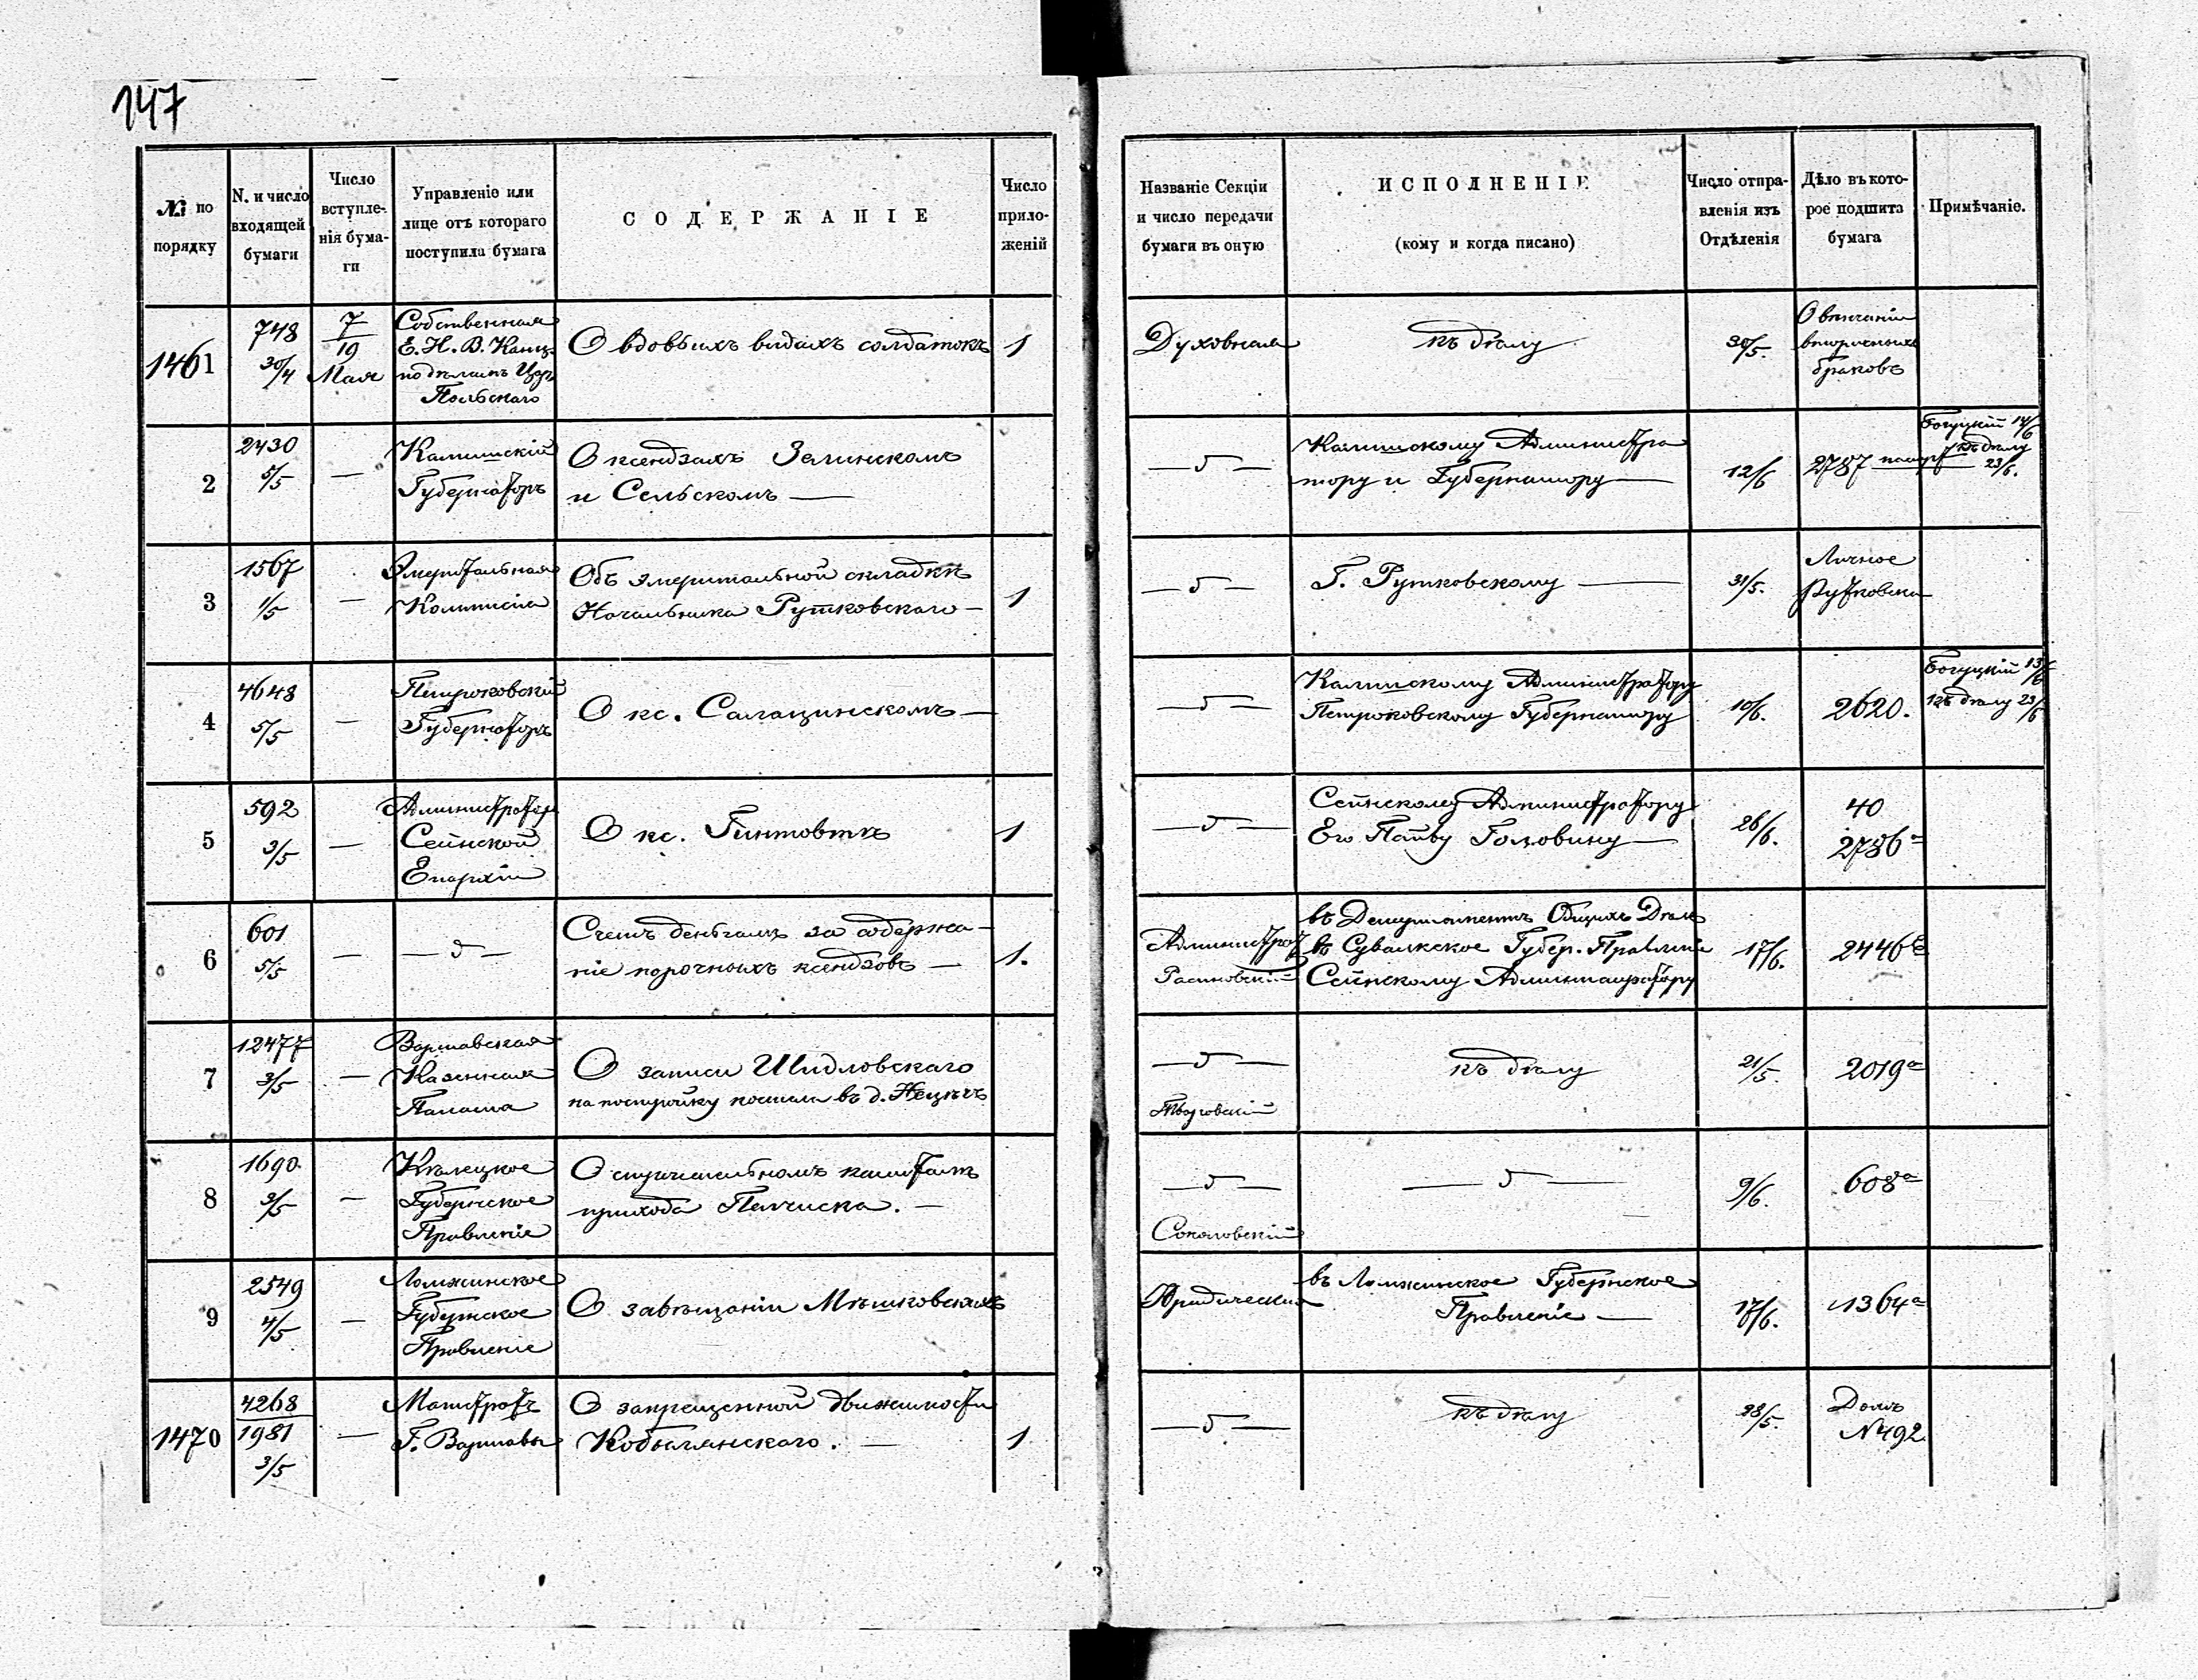 147
№ по порядку
N. и число входящей бумаги
Число вступленія бумаги
Управленіе или лице отъ котораго поступила бумага
СОДЕРЖАНІЕ
Число приложеній
Названіе Секціи и число передачи бумаги въ оную
ИСПОЛНЕНІЕ
(кому и когда писано)
Число отправленія изъ Отдѣленія
Дѣло въ которое подшита бумага
Примѣчаніе.
1461
748
30/4
7/19
Мая
Собственная
Е. И. В. Канц.
по дѣламъ Цар.
Польскаго
О вдовьихъ видахъ солдатокъ
1
Духовная
къ дѣлу
30/5.
О внчаніи
вторичныхъ
браковъ
2
2430
5/5
—
Калишскій
Губернаторъ
О ксендзахъ Зелинскомъ
и Сельскомъ —
— д —
Калишскому Администра
тору и Губернатору —
12/6
2787
Богуцкій 14/6
къ дѣлу
23/6.
3
1567
1/5
—
Эмеритальная
Коммисія
Объ эмеритальной складкѣ
Начальника Рутковскаго —
1
— д —
Г. Рутковскому —
31/5.
Личное
Рутковска
4
4648
5/5
—
Петроковскій
Губернаторъ
О кс. Салацинскомъ —
— д —
Калишскому Администратору
Петроковскому Губернатору
10/6.
2620.
Богуцкій 13/6
къ дѣлу 23/6
5
592
3/5
—
Администраторъ
Сейнской
Епархіи
О кс. Гинтовтѣ
1
— д —
Сейнскому Администратору
Его Прву Головину —
26/6.
40
2786а
6
601
5/5
—
— д —
Счетъ деньгамъ за содержа-
ніе порочныхъ ксендзовъ —
1.
Администрат
въ Департаментъ Общихъ Дѣлъ
въ Сувалкское Губер. Правленіе
Сейнскому Администратору
17/6.
2446
7
12477
3/5
—
Варшавская
Казенная
Палата
О записи Шидловскаго
на постройку костела въ д. Нецѣчъ
— д —
къ дѣлу
21/5.
2019а
8
1690.
3/5
—
Кѣлецкое
Губернское
Правленіе
О строительномъ капиталѣ
прихода Пелчиска. —
— д —
Соколовскій
— д —
9/6.
608а
9
2549
4/5
—
Ломжинское
Губернское
Правленіе
О завѣщаніи Мѣшковскихъ
Юридическая
въ Ломжинское Губернское
Правленіе —
17/6.
1364а
1470
4268
1981
3/5
—
Магистратъ
Г. Варшавы
О запрещенной движимости
Кобылянскаго. —
1
— д —
къ дѣлу
28/5.
Домъ
N 492.